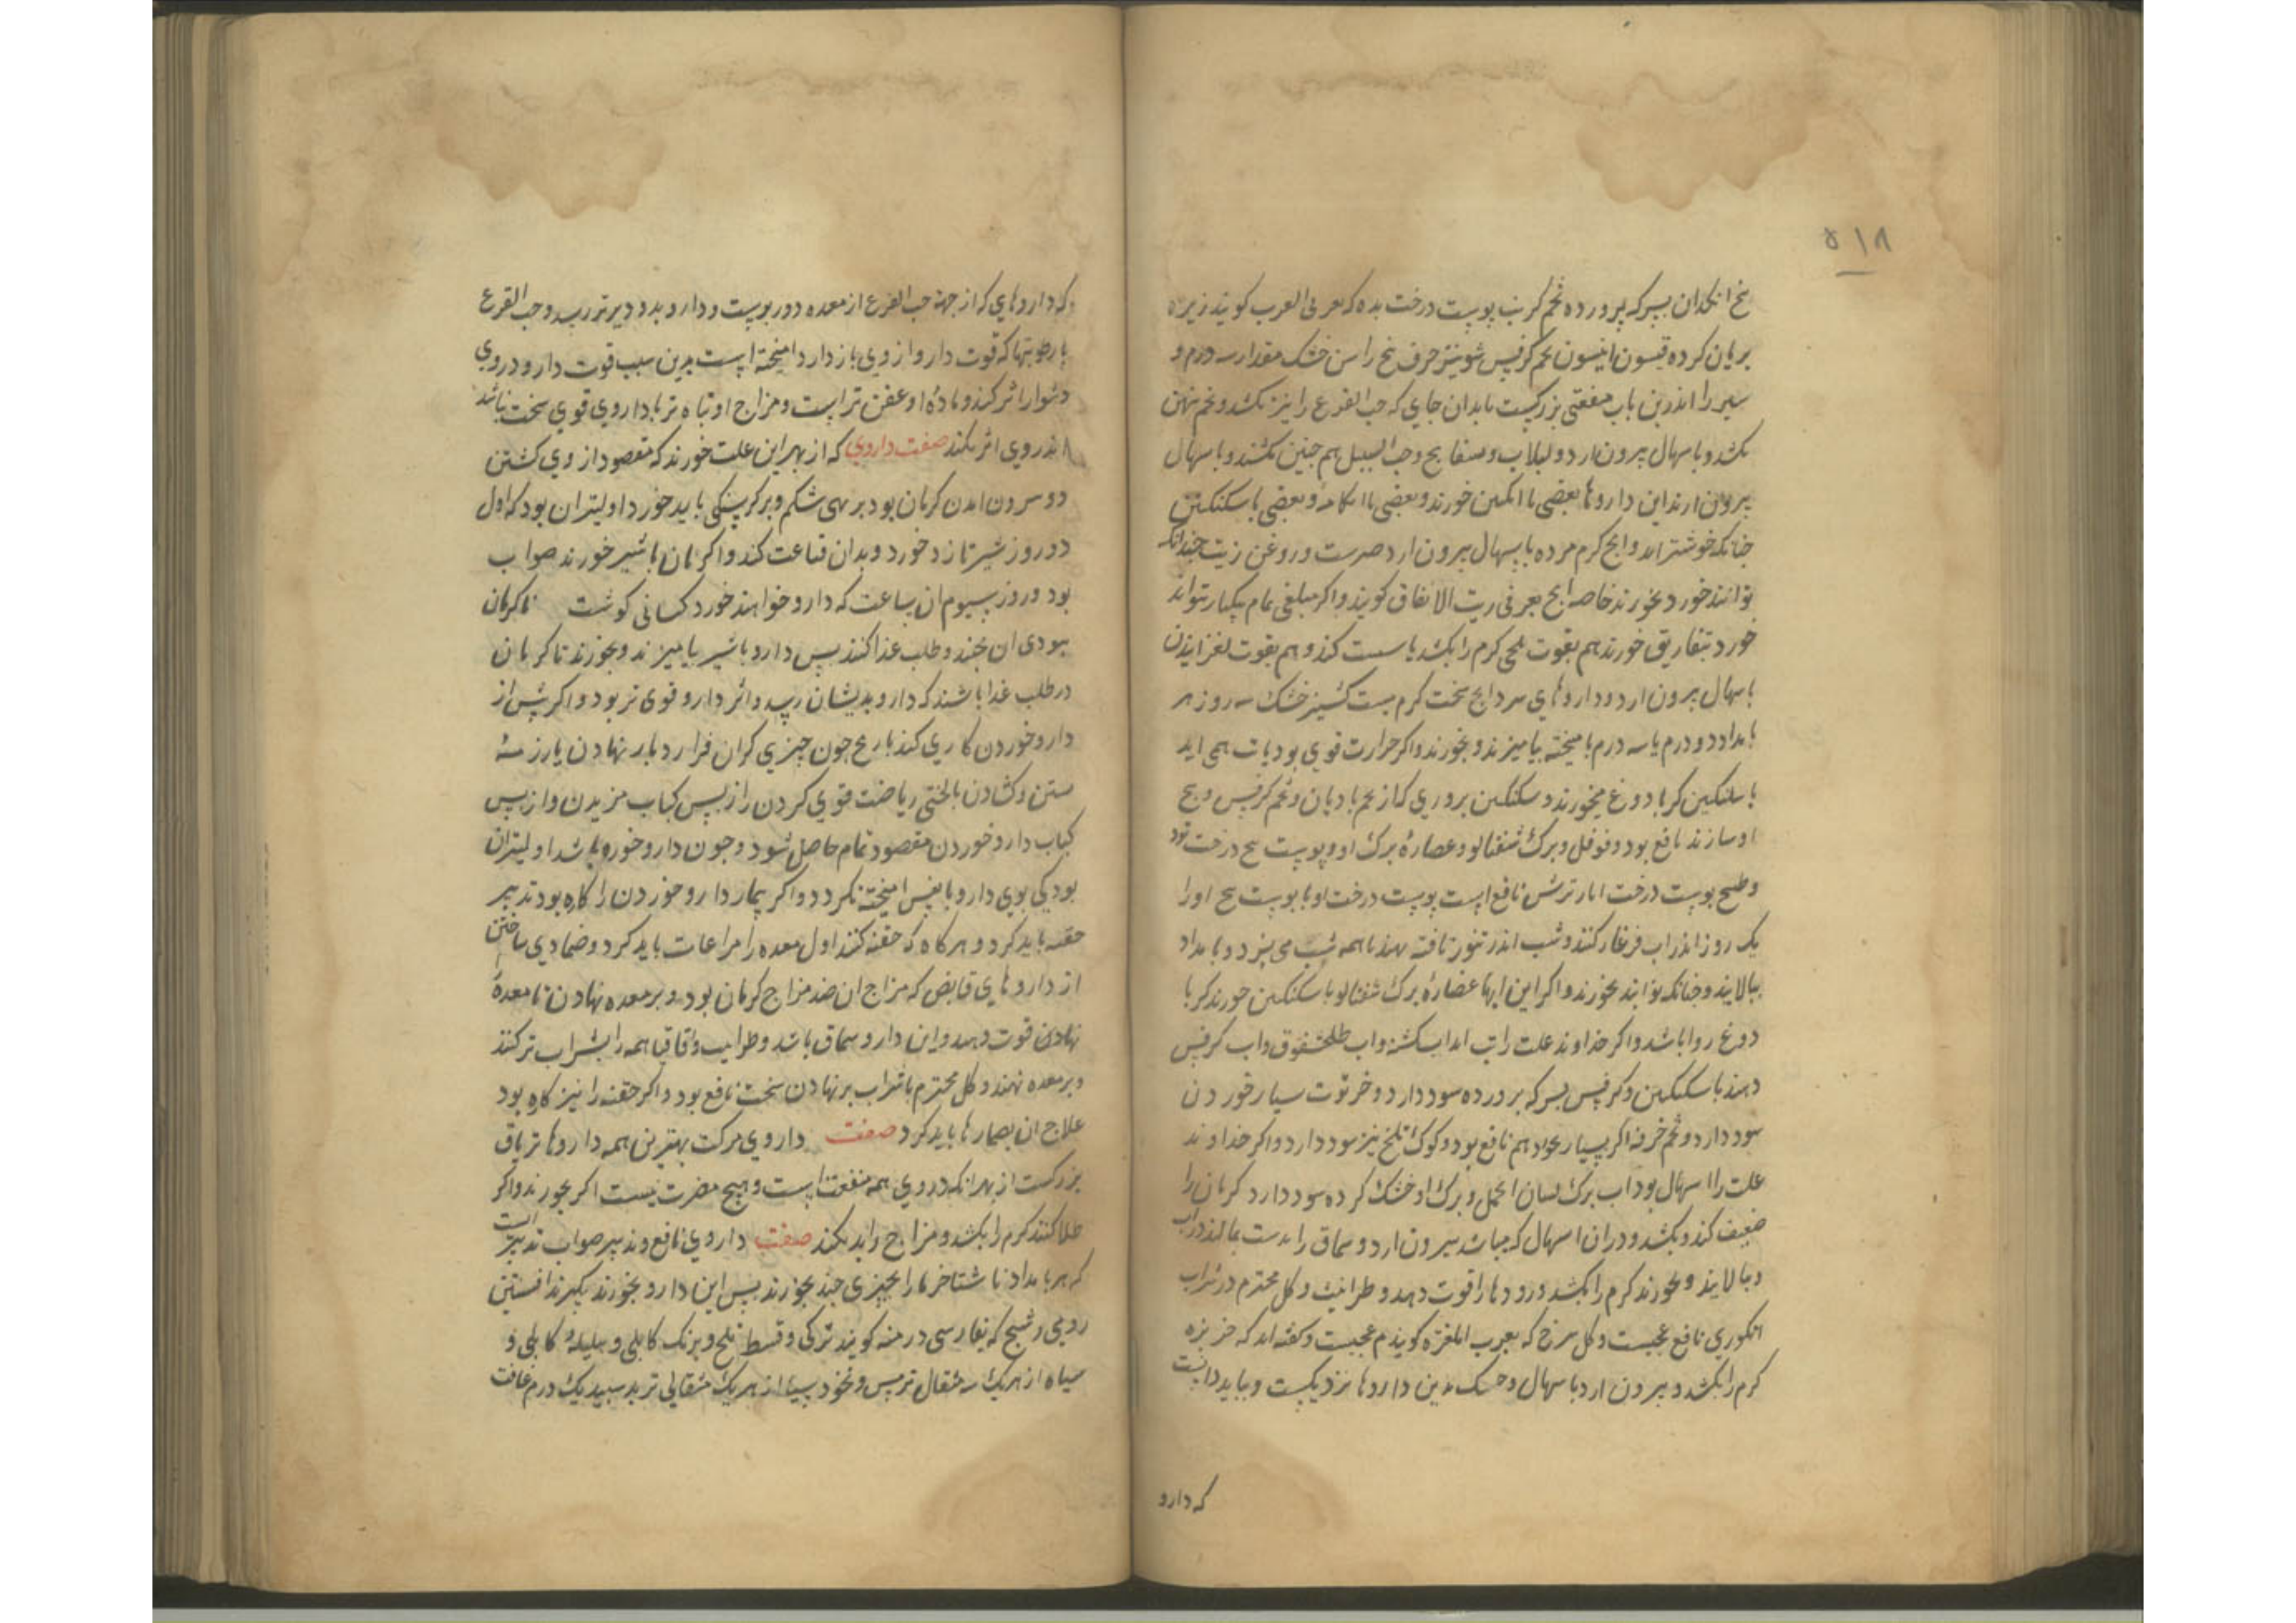 ۵۱۸
بخ انکدان بسرکه پرورده تخم کرنب پوست درخت بده که بعربی العرب کویند زیره
بریان کرده قیسون انیسون تخم کرفس شونیز حرف بخ راسن خشک مقدار سه درم و
سیر را اندرین باب منفعتی بزرکست بابدان جای که حب القرع را نیز بکشد و تخم نهن
بکشد و باسهال بیرون ارد و لبلاب و بسفایج و حب النیل هم چنین بکشند و باسهال
بیرون ارند این داروها بعضی با انکبین خورند و بعضی با ابکامه و بعضی با سکنکبین
چنانکه خوشتر اید و انج کرم مرده باسهال بیرون ارد صبرست و روغن زیت چندانکه
توانند خورد بخورند خاصه انج بعربی زیت الانفاق کویند و اکر مبلغی تمام یکبار نتواند
خورد بتفاریق خورند هم بقوت تلخی کرم را بکشد یا سست کند و هم بقوت لغزانیدن
باسهال بیرون ارد و داروهای سرد انج سخت کرم نیست کشنیز خشک سه روز هر
بامداد دو درم یا سه درم با میخته بیامیزند و بخورند و اکر حرارت قوی بود یا تب همی اید
با سکنکبین کر با دوغ میخورند و سکنکبین بروری که از تخم بادیان و تخم کرفس و بیخ
او سازند نافع بود و فوفل و برک شفتالو و عصارهٔ برک او و پوست بیخ درخت تود
و طبیخ پوست درخت انار ترش نافع است پوست درخت او با پوست بیخ او را
یک روز اندر اب فرغار کنند و شب اندر تنور تافته نهند تا همه شب می پزد و بامداد
ببالایند و چنانکه توانند بخورند و اکر این ابها عصارهٔ برک شفتالو با سکنکبین خورند کر با
دوغ روا باشد و اکر خداوند علت را تب اید اب کشنیز و اب طلخشقوق و اب کرفس
دهند با سکنکبین و کرفس بسرکه پرورده سود دارد و خرتوت بسیار خوردن
سود دارد و تخم خرفه اکر بسیار خواد هم نافع بود و کوک تلخ نیز سود دارد و اکر خداوند
علت را اسهال بود اب برک لسان الحمل و برک او خشک کرده سود دارد کرمان را
ضعیف کند و بکشد و در ان اسهال که میباشد بیرون ارد و سماق را بدست بمالند در اب
و ببالایند و بخورند کرم را بکشد و رودها را قوت دهد و طراثیث و کل مختوم در شراب
انکوری نافع عجیبست و کل سرخ که بعرب المغره کویند م عجیبست و کفته اند که خربزه
کرم را بکشد و بیرون ارد باسهال و خسک بدین داروها نزدیکست و بباید دانست
که دارو
که داروهای که از جهة حب القرع از معده دور بوست و دارو بدو دیرتر رسد و حب القرع
با رطوبتها که قوت دارو از وی باز دارد امیخته است بدین سبب قوت دارو در وی
دشوار اثر کند و مادهٔ او عفن تر است و مزاج او تباه تر تا داروی قوی سخت نباشد
اندر وی اثر نکند صفت داروی که از بهر این علت خورند که مقصود از وی کشتن
دو روز شیر تازه خورد و بدان قناعت کند و اکر نان با شیر خورند صواب
بود و روز سیوم ان ساعت که دارو خواهند خورد کسانی کوشت تا کرمان
ببوی ان بجنبند و طلب غذا کنند پس دارو با شیر بیامیزند و بخورند تا کرمان
در طلب غذا باشند که دارو بدیشان رسد و اثر دارو قوی تر بود و اکر پس از
دارو خوردن کاری کند با رنج چون چیزی کران فرا رد بار نهادن
کباب دارو خوردن مقصود تمام حاصل شود و چون دارو خورده باشد اولیتران
بود که بوی دارو با نفس امیخته نکردد و اکر بیمار دارو خوردن را کاره بود تدبیر
حقنه باید کرد و هر کاه که حقنه کنند اول معده را مراعات باید کرد و ضمادی ساختن
از داروهای قابض که مزاج ان ضد مزاج کرمان بود و بر معده نهادن تا معدهٔ
نهادن قوت دهد و این دارو سماق باشد و طراثیث و اقاقیا همه را بشراب تر کنند
و بر معده نهند و کل مختوم با شراب بر نهادن سخت نافع بود و اکر حقنه را نیز کاره بود
علاج ان بضمادها باید کرد صفت داروی مرکب بهترین همه داروها تریاق
بزرکست از بهر انکه در وی همه منفعتها است و هیچ مضرت نیست اکر بخورند و اکر
طلا کنند کرم را بکشد و مزاج را بد نکند صفت داروی نافع و تدبیر صواب تدبیر است
که هر بامداد ناشتا خرما را چیزی چند بخورند پس این دارو بخورند بکیرند افسنتین
رومی و شیح که بفارسی درمنه کویند ترکی و قسط تلخ و برنک کابلی و بلیلهٔ کابلی و
سیاه از هر یک سه مثقال ترمس و نخود سیاه از هر یک مثقالی تربد سپید یک درم غافت